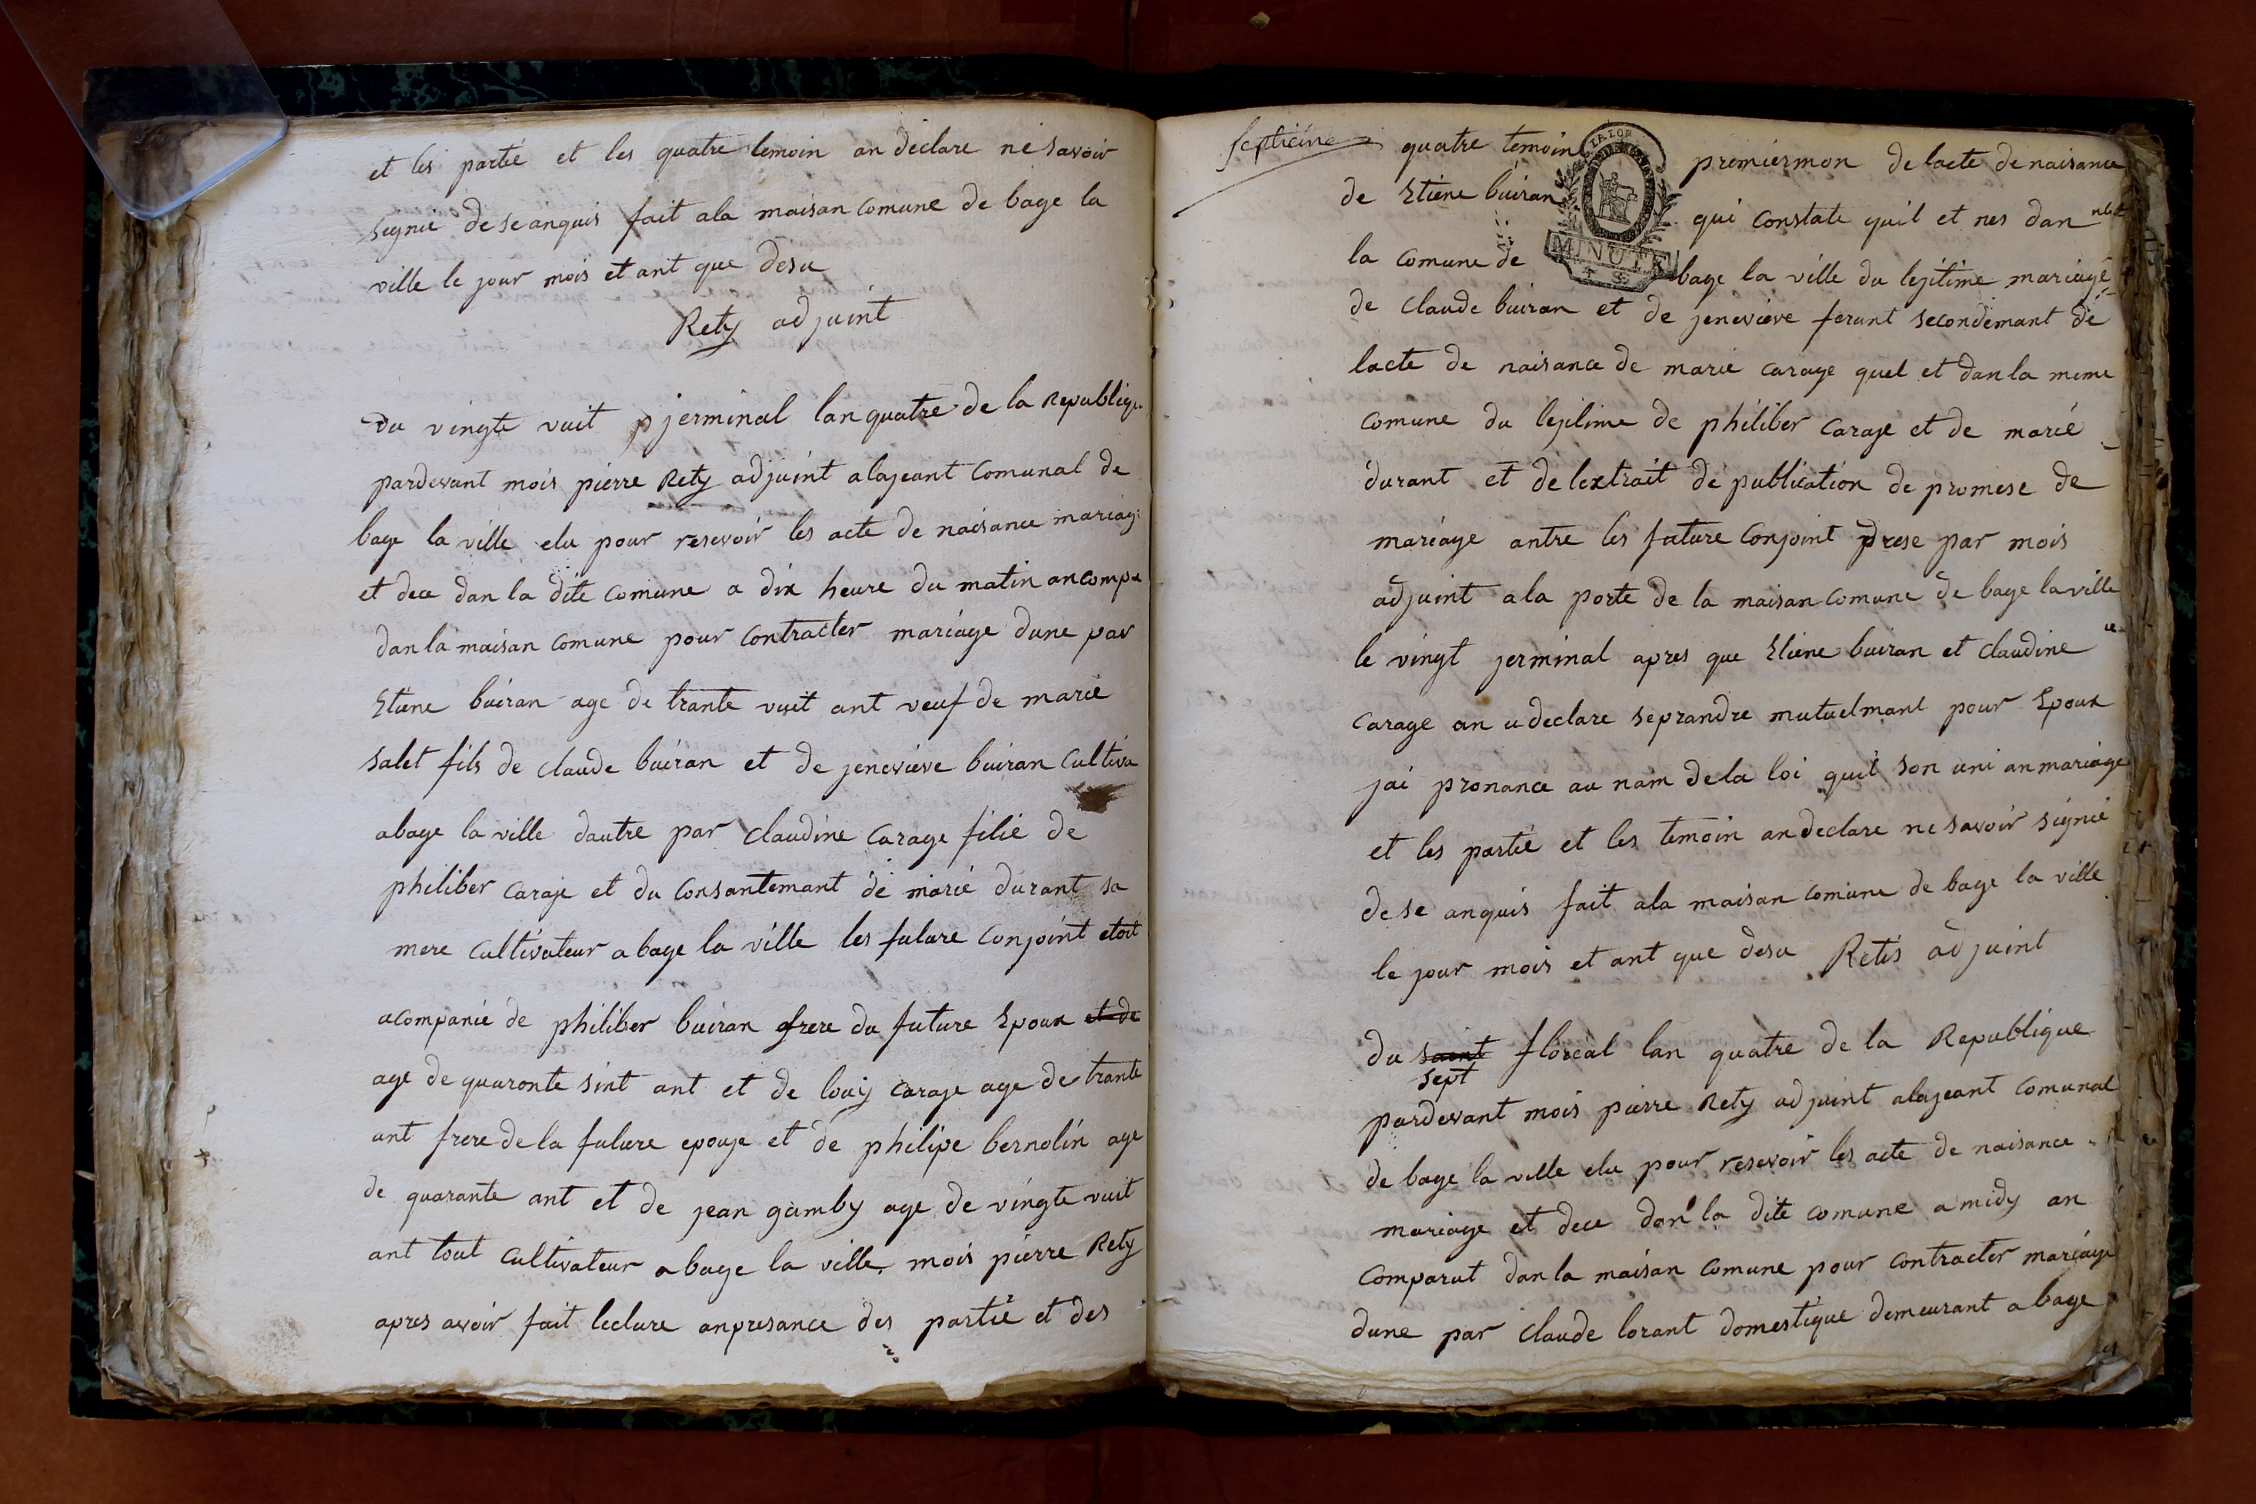 et les partie et les quatre temoin an declare ne savoir
signié de se anquis fait a la maisan comune de bage la
ville le jour mois et ant que desu
Rety adjuint
Du vingte vuit jerminal lan quatre de la Republiq
pardevant mois pierre Rety adjuint a lajeant comunal de
bage la ville elu pour resevoir les acte de naisance mariag
et dece dan la dite comune a dix heure du matin an compa
dan la maisan comune pour contracter mariage dune par
Etiene buiran age de trante vuit ant veuf de marie
salet fils de claude buiran et de jenevieve buiran cultiva
a bage la ville dautre par claudine carage filie de
philiber caraje et du consantemant de marie durant sa
mere cultivateur a bage la ville les future conjoint etoit
acompanié de philiber buiran frere du future Epoux et de
age de quaronte sint ant et de louis caraje age de trante
ant frere de la future epouje et de philipe bernolin age
de quarante ant et de jean gamby age de vingte vuit
ant tout cultivateur a bage la ville mois pierre Rety
apres avoir fait lecture an presance des partie et des
septieme
quatre temoin premiermon de lacte de naisance
de Etiene buiran qui constate quil et nes dan
la comune de bage la ville du lejitime mariage
MINUTE
de claude buiran et de jenevieve ferant secondemant de
lacte de naisance de marie carage quel et dan la meme
comune du lejitime de philiber caraje et de marie
durant et de lextrait de publication de promese de
mariage antre les future conjoint drese par mois
adjuint a la porte de la maisan comune de bage la ville
le vingt jerminal apres que Etiene buiran et claudine
carage an u declare se prandre mutuelmant pour Epoux
jai pronance au nam de la loi quil son uni an mariage
et les partie et les temoin an declare ne savoir signié
de se anquis fait a la maisan comune de bage la ville
le jour mois et ant que desu Retis adjuint
du saint floreal lan quatre de la Republique
sept
pardevant mois pierre Rety adjuint a lajeant comunal
de bage la ville elu pour resevoir les acte de naisance
mariage et dece dan la dite comune a midy an
comparut dan la maisan comune pour contracter mariage
dune par claude lorant domestique demeurant a bage